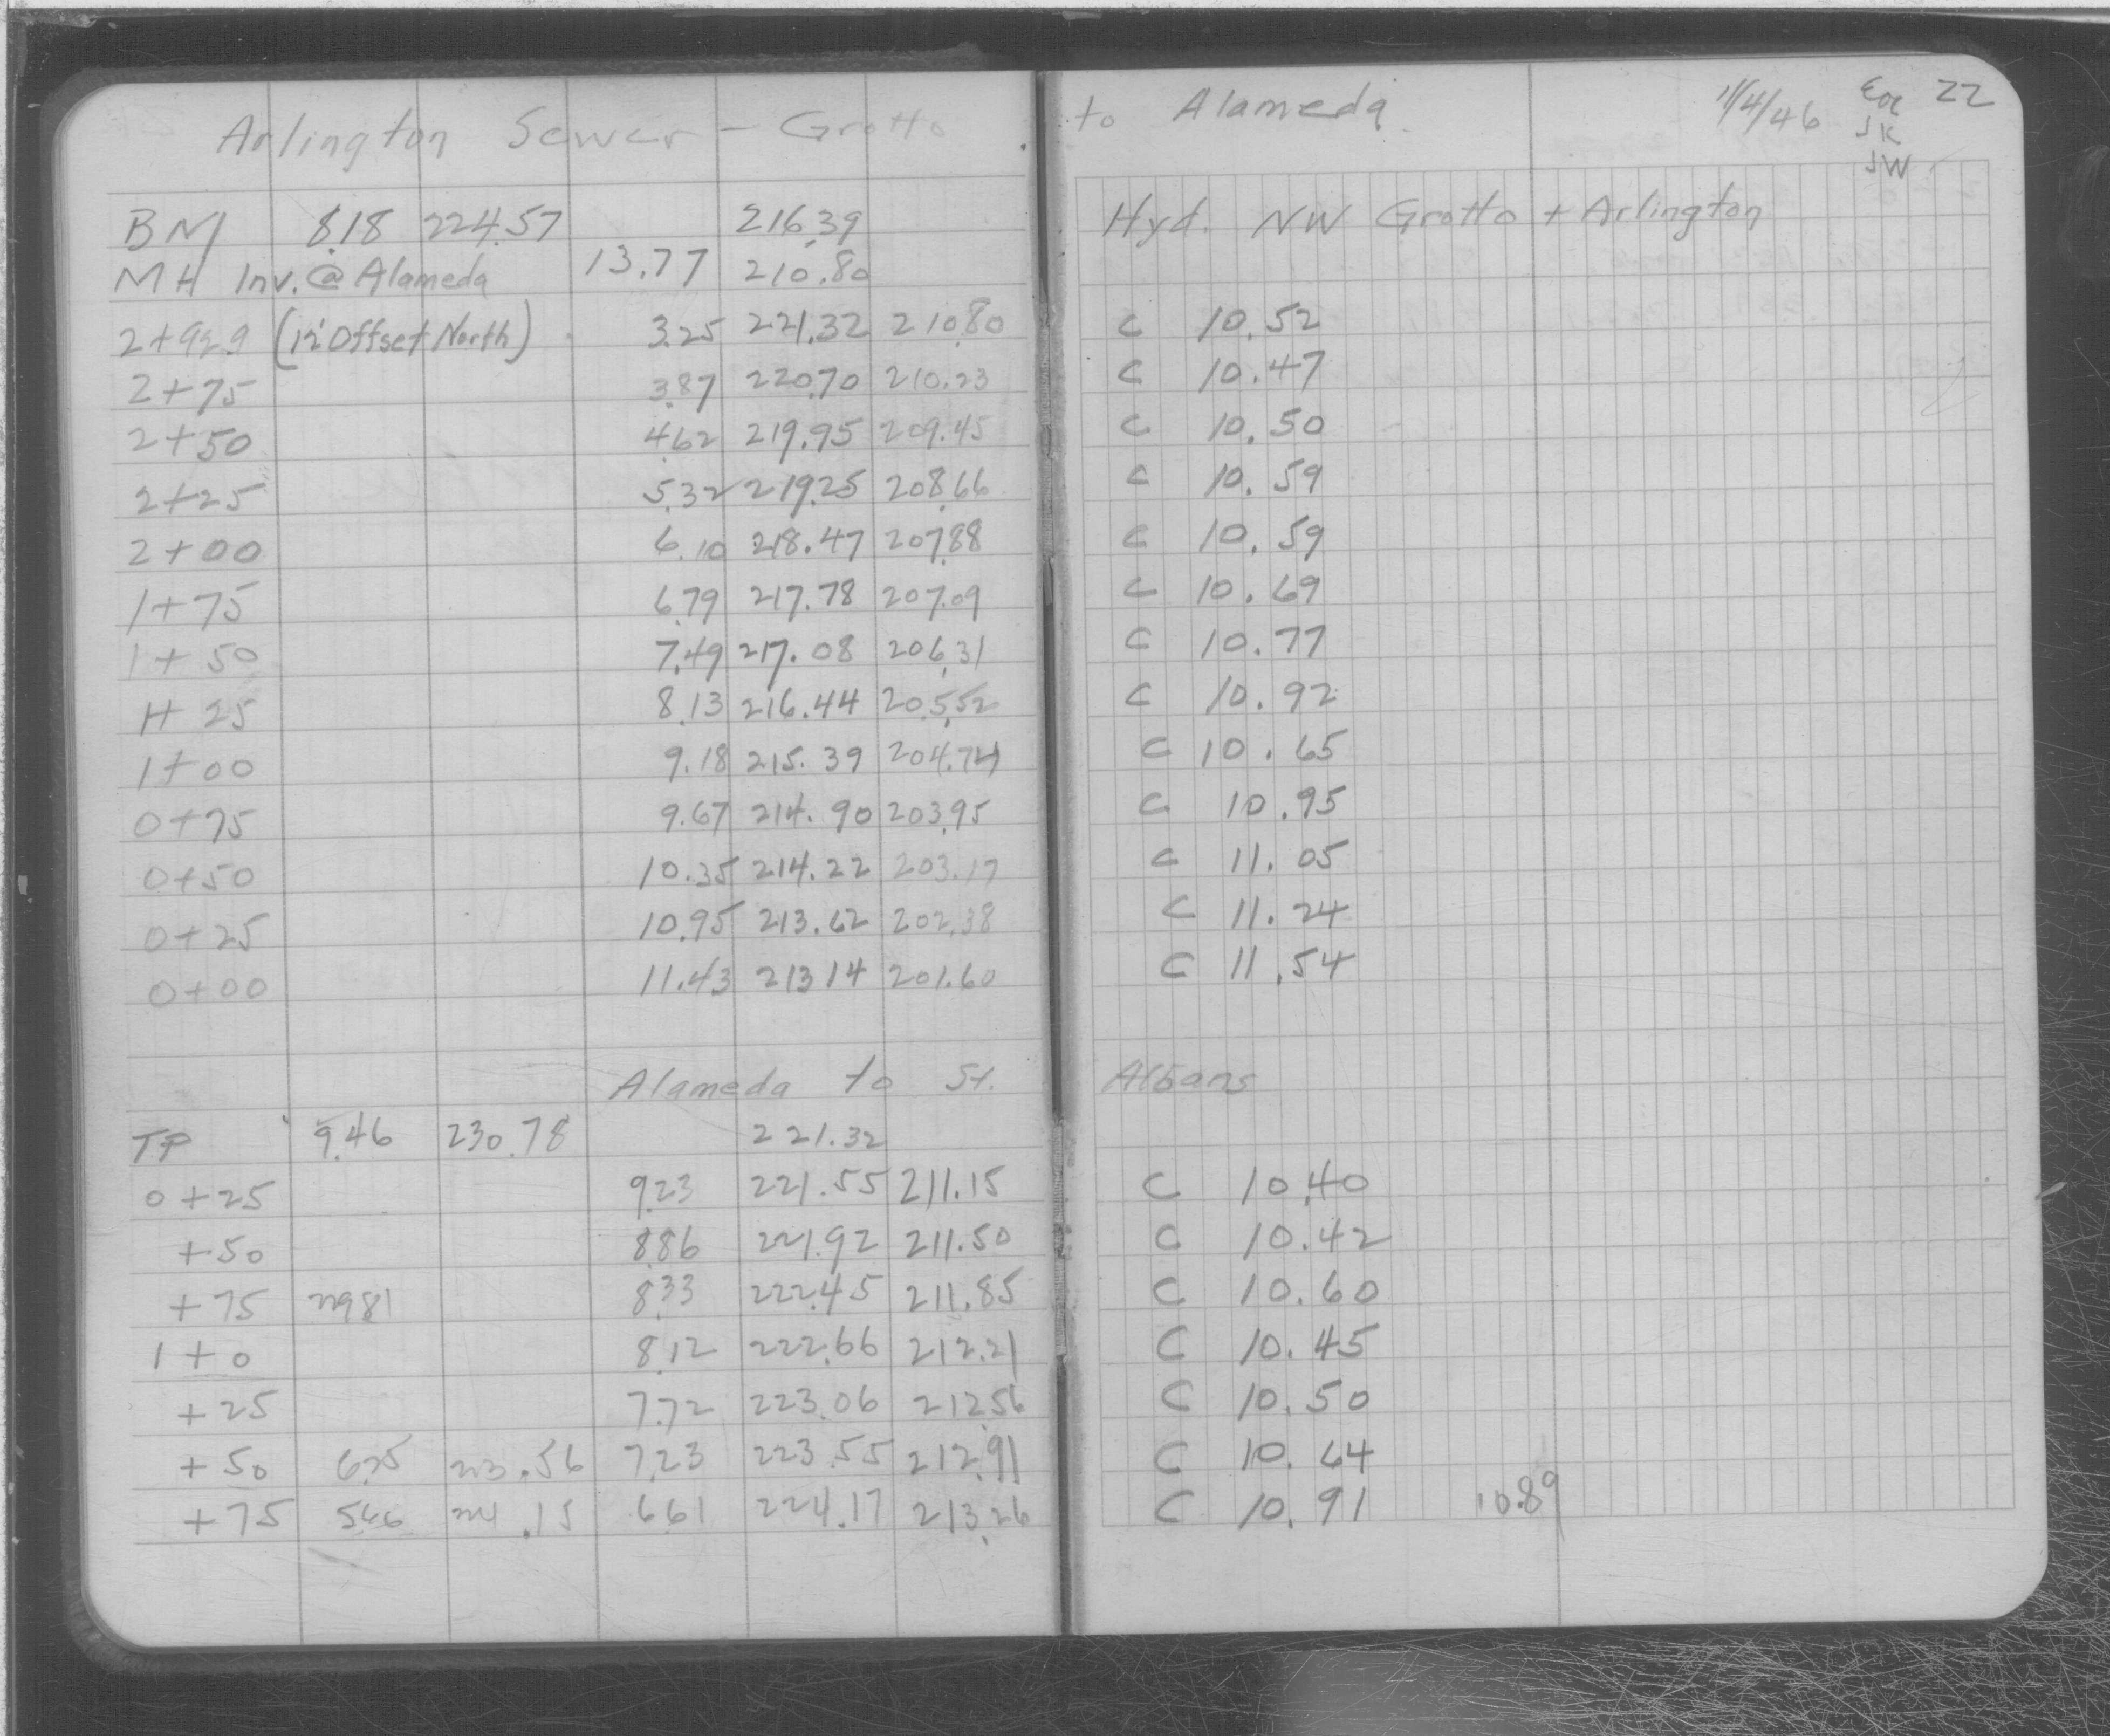 Arlington Sewer - Grotto to Alameda 11/4/46 22
JK
JW
BM 8.18 224.57 216.39 Hyd. NW Grotto + Arlington
MH Inv. @ Alameda 13.77 210.80
2+92.9 (12' Offset North) 3.25 221.32 210.80 C 10.52
2+75 3.87 220.70 210.23 C 10.47
2+50 4.62 219.95 209.45 C 10.50
2+25 5.32 219.25 208.66 C 10.59
2+00 6.10 218.47 207.88 C 10.59
1+75 6.79 217.78 207.09 C 10.69
1+50 7.49 217.08 206.31 C 10.77
1+25 8.13 216.44 205.52 C 10.92
1+00 9.18 215.39 204.74 C 10.65
0+75 9.67 214.90 203.95 C 10.95
0+50 10.35 214.22 203.17 C 11.05
0+25 10.95 213.62 202.38 C 11.24
0+00 11.43 213.14 201.60 C 11.54
Alameda to St. Albans
TP 9.46 230.78 221.32
0+25 9.23 221.55 211.15 C 10.40
+50 8.86 221.92 211.50 C 10.42
+75 22981 8.33 222.45 211.85 C 10.60
1+0 8.12 222.66 212.21 C 10.45
+25 7.72 223.06 212.56 C 10.50
+50 6.25 223.56 7.23 223.55 212.91 C 10.64
+75 5.66 224.15 6.61 224.17 213.26 C 10.91 10.89